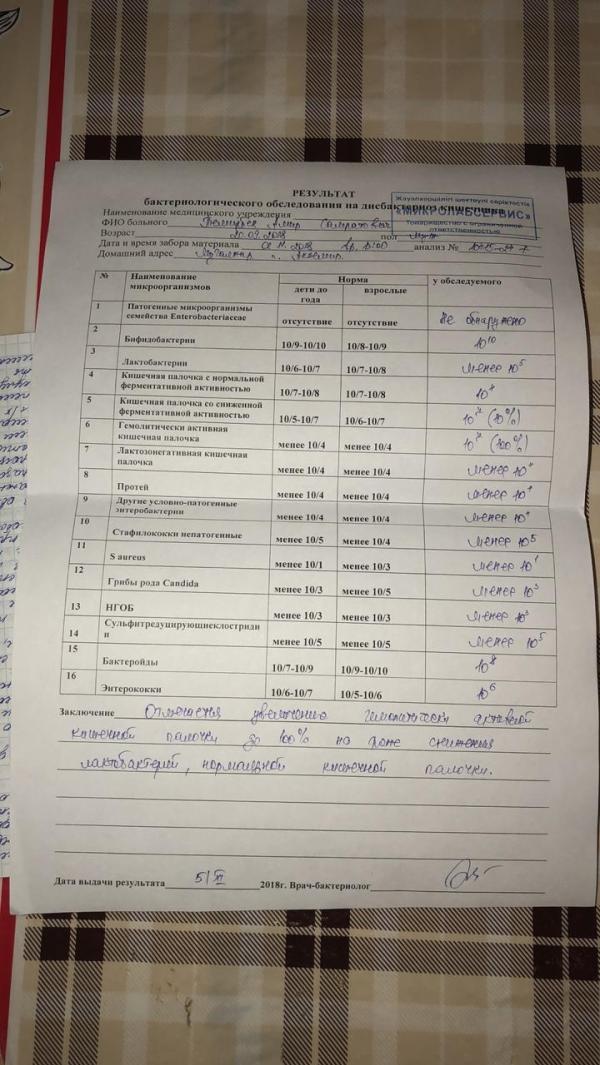 РЕЗУЛЬТАТ
бактериологического обследования на дисбактериоз кишечника
Жауапкершілігі шектеулі серіктестік
«МИКРОЛАБСЕРВИС»
Товарищество с ограниченной
ответственностью
Наименование медицинского учреждения
ФИО больного Амир
Возраст 20.09.2018 пол муж
Дата и время забора материала 2018 вр. анализ №
Домашний адрес
№ Наименование микроорганизмов Норма у обследуемого
дети до года взрослые
1 Патогенные микроорганизмы семейства Enterobacteriaceae отсутствие отсутствие Не обнаружено
2 Бифидобактерии 10/9-10/10 10/8-10/9 10¹⁰
3 Лактобактерии 10/6-10/7 10/7-10/8 менее 10⁵
4 Кишечная палочка с нормальной ферментативной активностью 10/7-10/8 10/7-10/8
5 Кишечная палочка со сниженной ферментативной активностью 10/5-10/7 10/6-10/7 (10%)
6 Гемолитически активная кишечная палочка менее 10/4 менее 10/4 (100%)
7 Лактозонегативная кишечная палочка менее 10/4 менее 10/4 менее 10⁴
8 Протей менее 10/4 менее 10/4 менее 10⁴
9 Другие условно-патогенные энтеробактерии менее 10/4 менее 10/4 менее 10⁴
10 Стафилококки непатогенные менее 10/5 менее 10/4 менее 10⁵
11 S aureus менее 10/1 менее 10/3 менее 10¹
12 Грибы рода Candida менее 10/3 менее 10/5 менее 10³
13 НГОБ менее 10/3 менее 10/3 менее 10³
14 Сульфитредуцирующиеклостридии менее 10/5 менее 10/5 менее 10⁵
15 Бактеройды 10/7-10/9 10/9-10/10 10⁸
16 Энтерококки 10/6-10/7 10/5-10/6 10⁶
Заключение Отмечается увеличение гемолитически активной
кишечной палочки до 100% на фоне снижения
лактобактерий, нормальной кишечной палочки.
Дата выдачи результата 5/XI 2018г. Врач-бактериолог